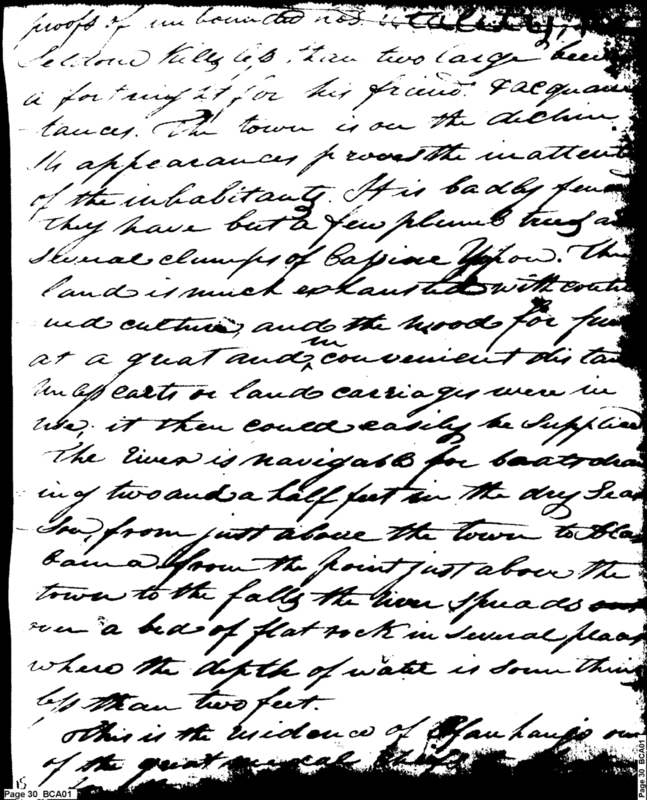 proofs of unbounded hos
Seldom kills less than two large
a fortnight for his friend & acquain
-tances. The town is on the declin
Its appearances proves the inattent
of the inhabitants. It is badly fenc
They have but a few plumb trees a
several clumps of Cassine Yupon. The
land is much exhausted with conti
ued culture, and the wood for fu
at a great and in convenient distan
unless carts or land carriages were in
use, it then could easily be supplied
The river is navigable for boats draw
ing two and a half feet in the dry sea
son, from just above the town to Ala
bama from the point just above the
town to the falls the river spreads
over a bed of flat rock in several places
where the depth of water is some thing
less than two feet.
This is the residence of
of the great
15
Page 30 _BCA01
Page 30 _BCA01